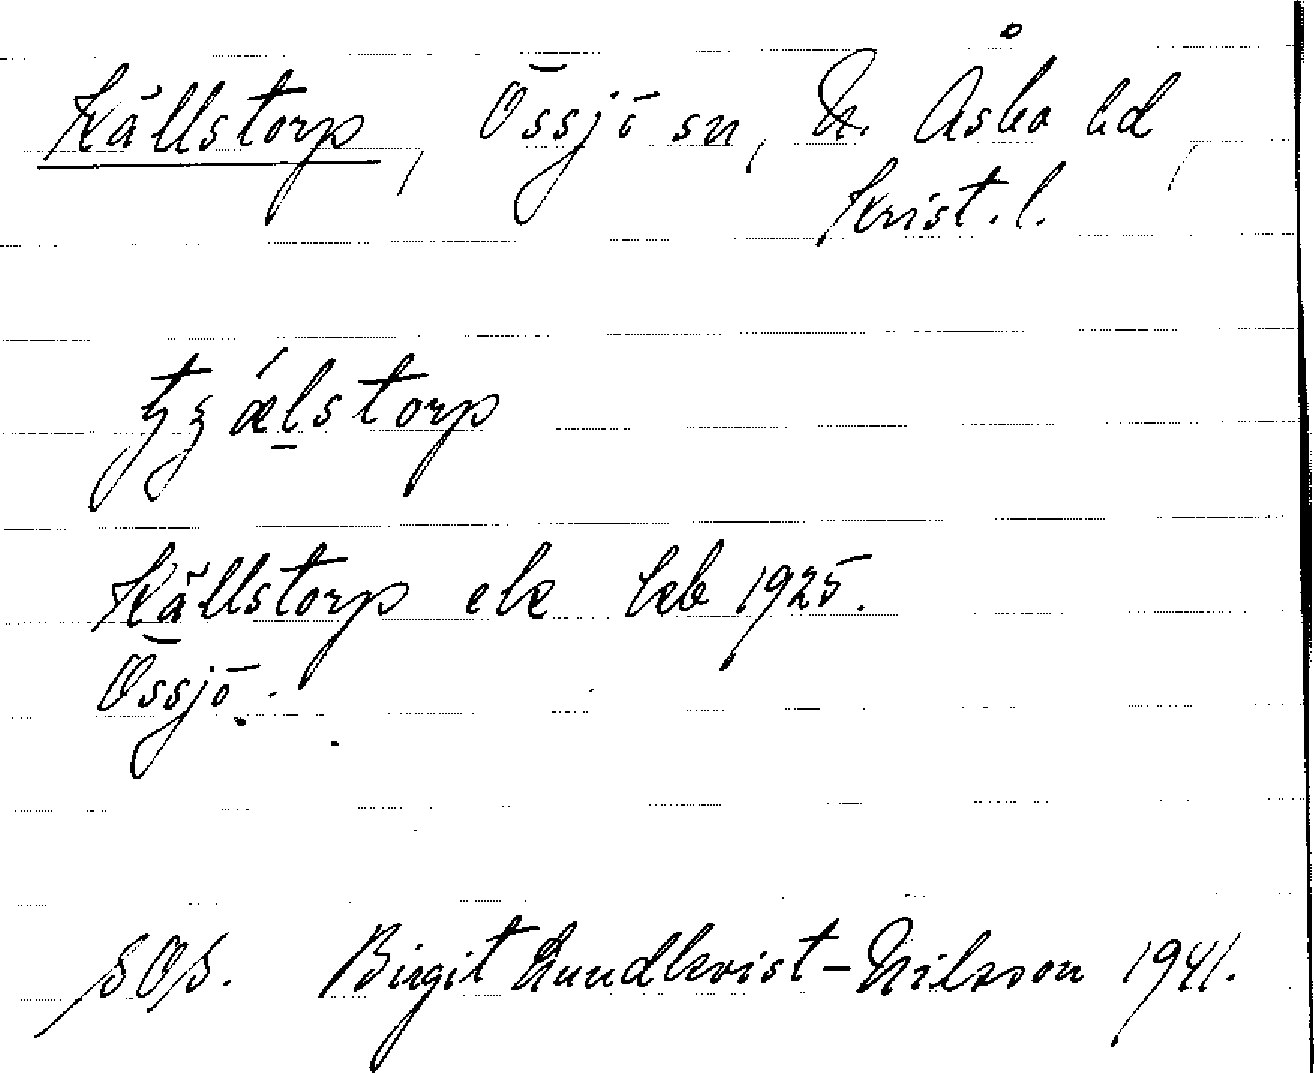 Källstorp, Össjö sn, N. Åsbo hd,
Krist. l.
tʒǽlstorp
Källstorp ek kb 1925.
Össjö.
SOS. Birgit Lundkvist-Nilsson 1941.